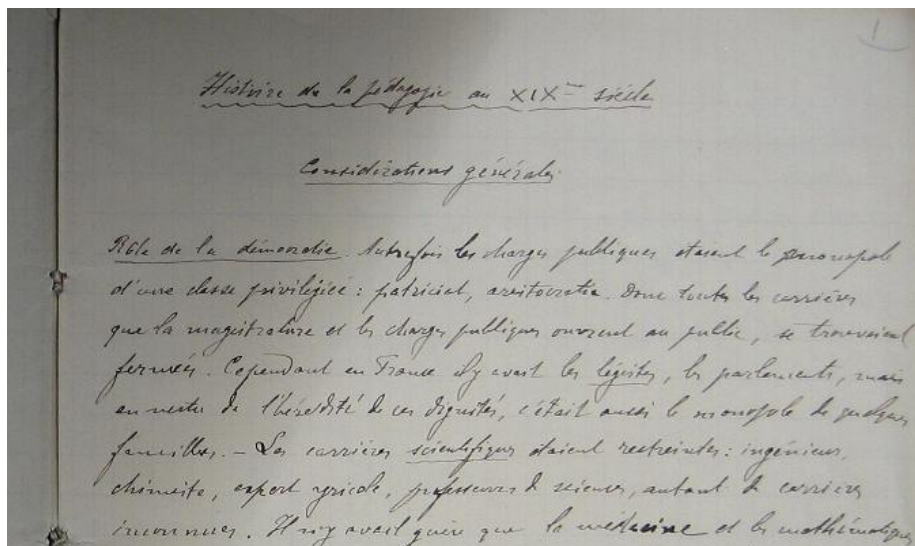 1
Histoire de la pédagogie au XIXme siècle
Considérations générales
Rôle de la démocratie. Autrefois les charges publiques étaient le monopole
d'une classe privilégiée : patriciat, aristocratie. Donc toutes les carrières
que la magistrature et les charges publiques ouvrent au public, se trouvaient
fermées. Cependant en France il y avait les légistes, les parlements, mais
en vertu de l'hérédité de ces dignités, c'était aussi le monopole de quelques
familles. – Les carrières scientifiques étaient restreintes : ingénieur,
chimiste, expert agricole, professeurs de sciences, autant de carrières
inconnues. Il n'y avait guère que la médecine et les mathématiques